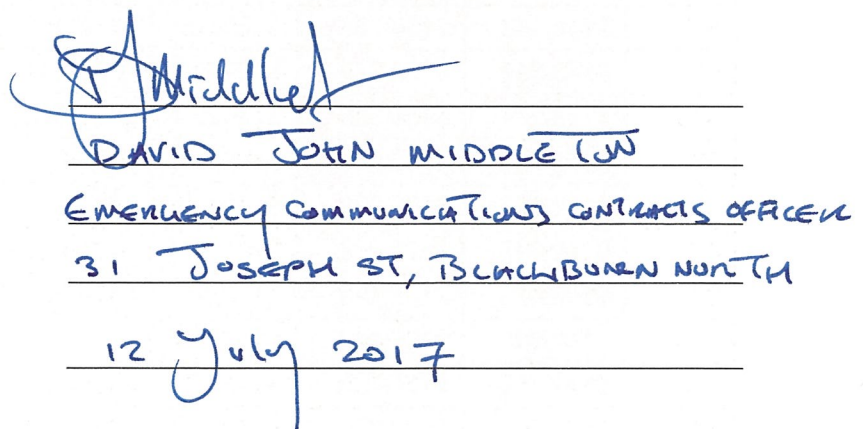 DJMiddleton
DAVID JOHN MIDDLETON
EMERGENCY COMMUNICATIONS CONTRACTS OFFICER
31 JOSEPH ST, BLACKBURN NORTH
12 July 2017